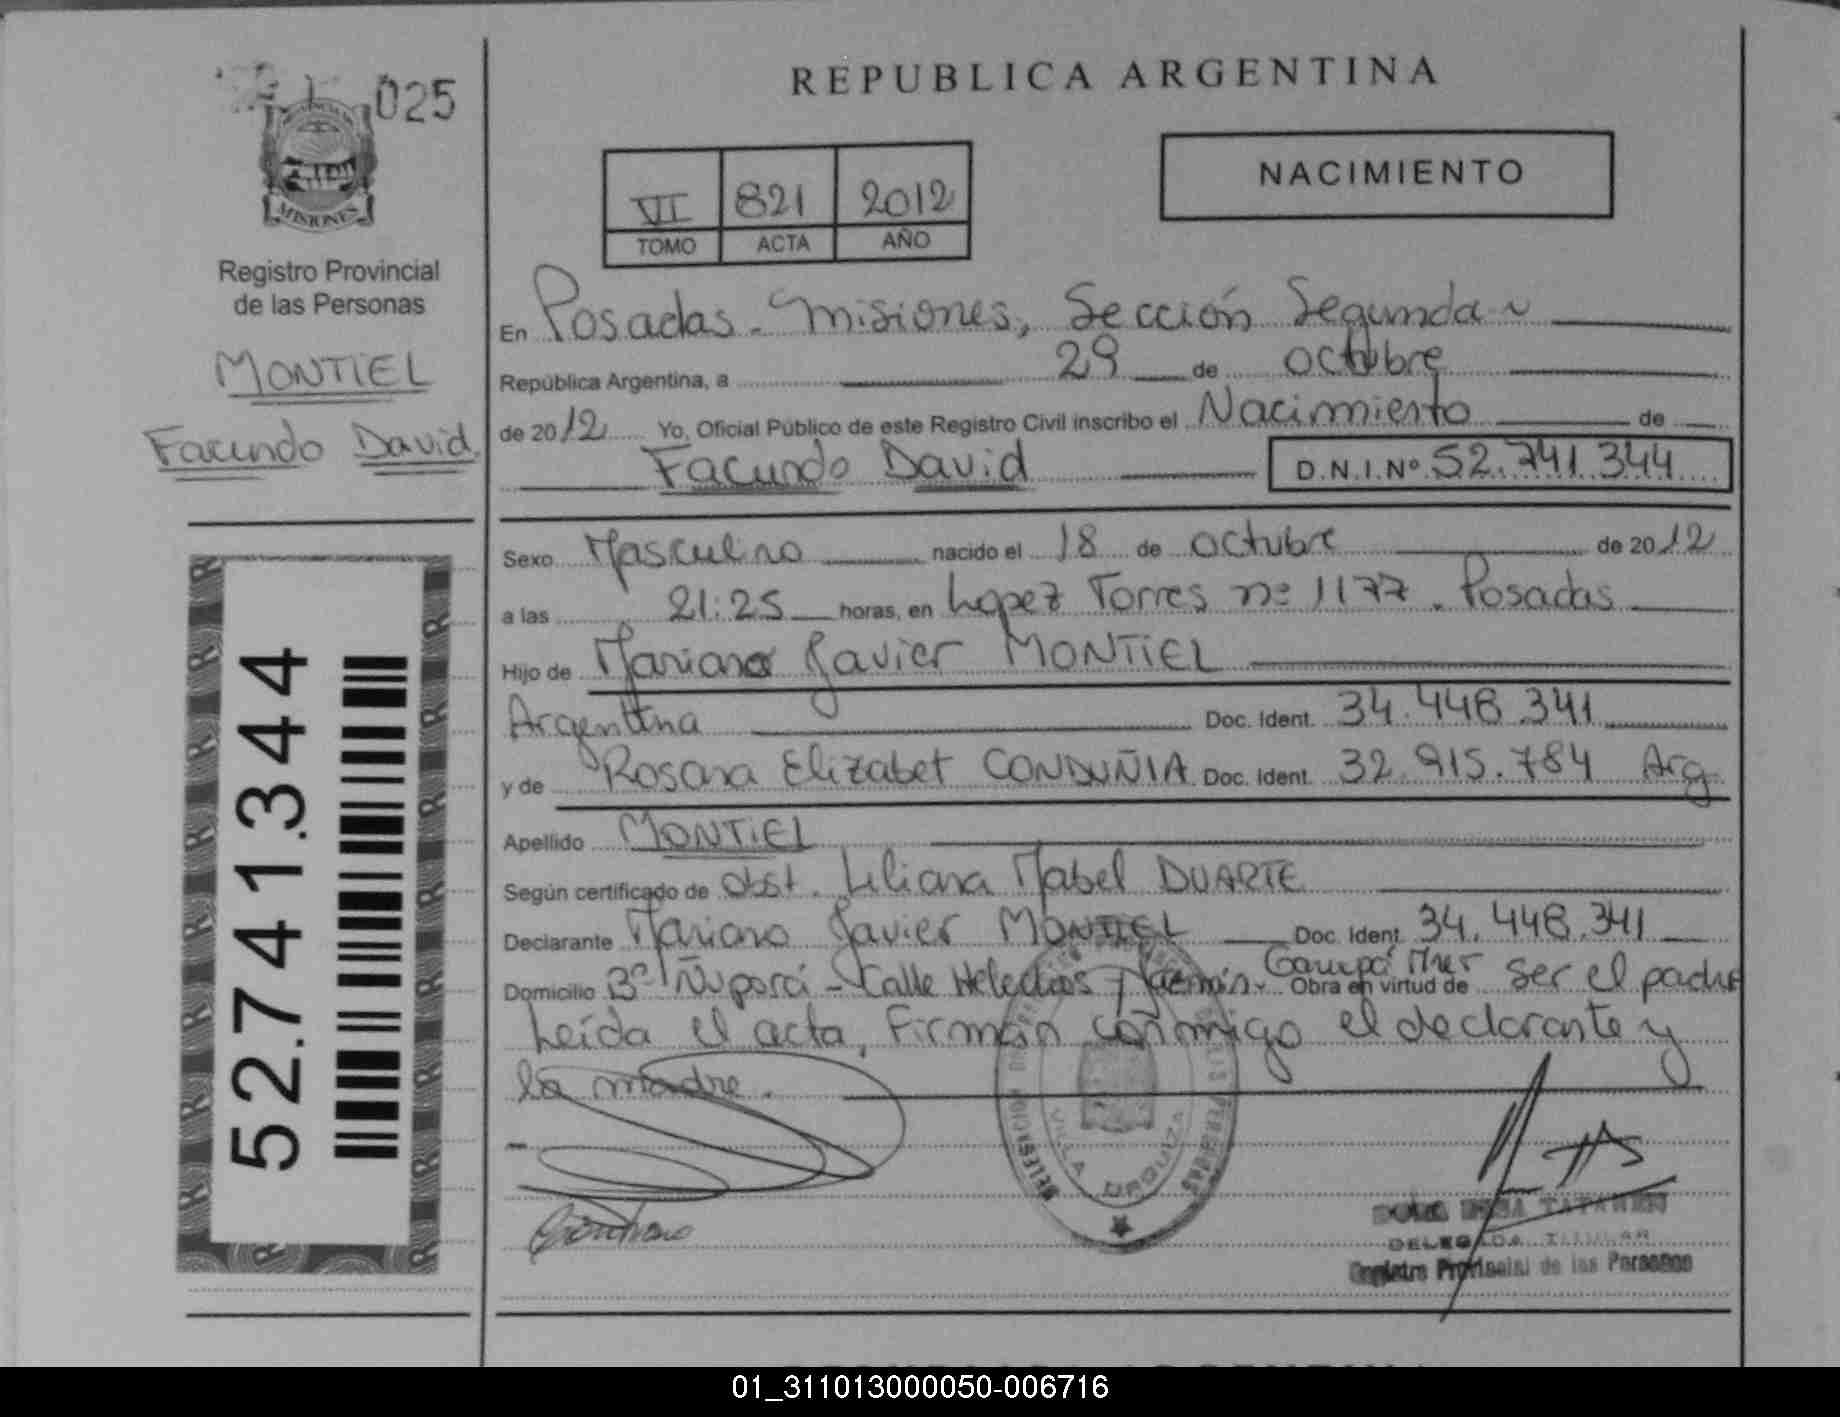 025
MISIONES
Registro Provincial
de las Personas
MONTIEL
Facundo David
52.741.344
REPUBLICA ARGENTINA
VI 821 2012
TOMO ACTA AÑO
NACIMIENTO
En Posadas - Misiones, Sección Segunda
República Argentina, a 29 de octubre
de 2012 Yo, Oficial Público de este Registro Civil inscribo el Nacimiento de
Facundo David D.N.I.Nº 52.741.344
Sexo Masculino nacido el 18 de octubre de 2012
a las 21:25 horas, en Lopez Torres nº 1177. Posadas
Hijo de Mariano Javier MONTIEL
Argentina Doc. Ident. 34.448.341
y de Rosana Elizabet CONDUÑIA Doc. Ident. 32.915.784 Arg
Apellido MONTIEL
Según certificado de obst. Liliana Mabel DUARTE
Declarante Mariano Javier MONTIEL Doc. Ident. 34.448.341
Domicilio Bº Ñu porá - Calle Helechos y Jazmín Obra en virtud de ser el padre
Leída el acta, Firman conmigo el declarante y
la madre.
VILLA URQUIZA
DELEGADA TITULAR
Registro Provincial de las Personas
01_311013000050-006716